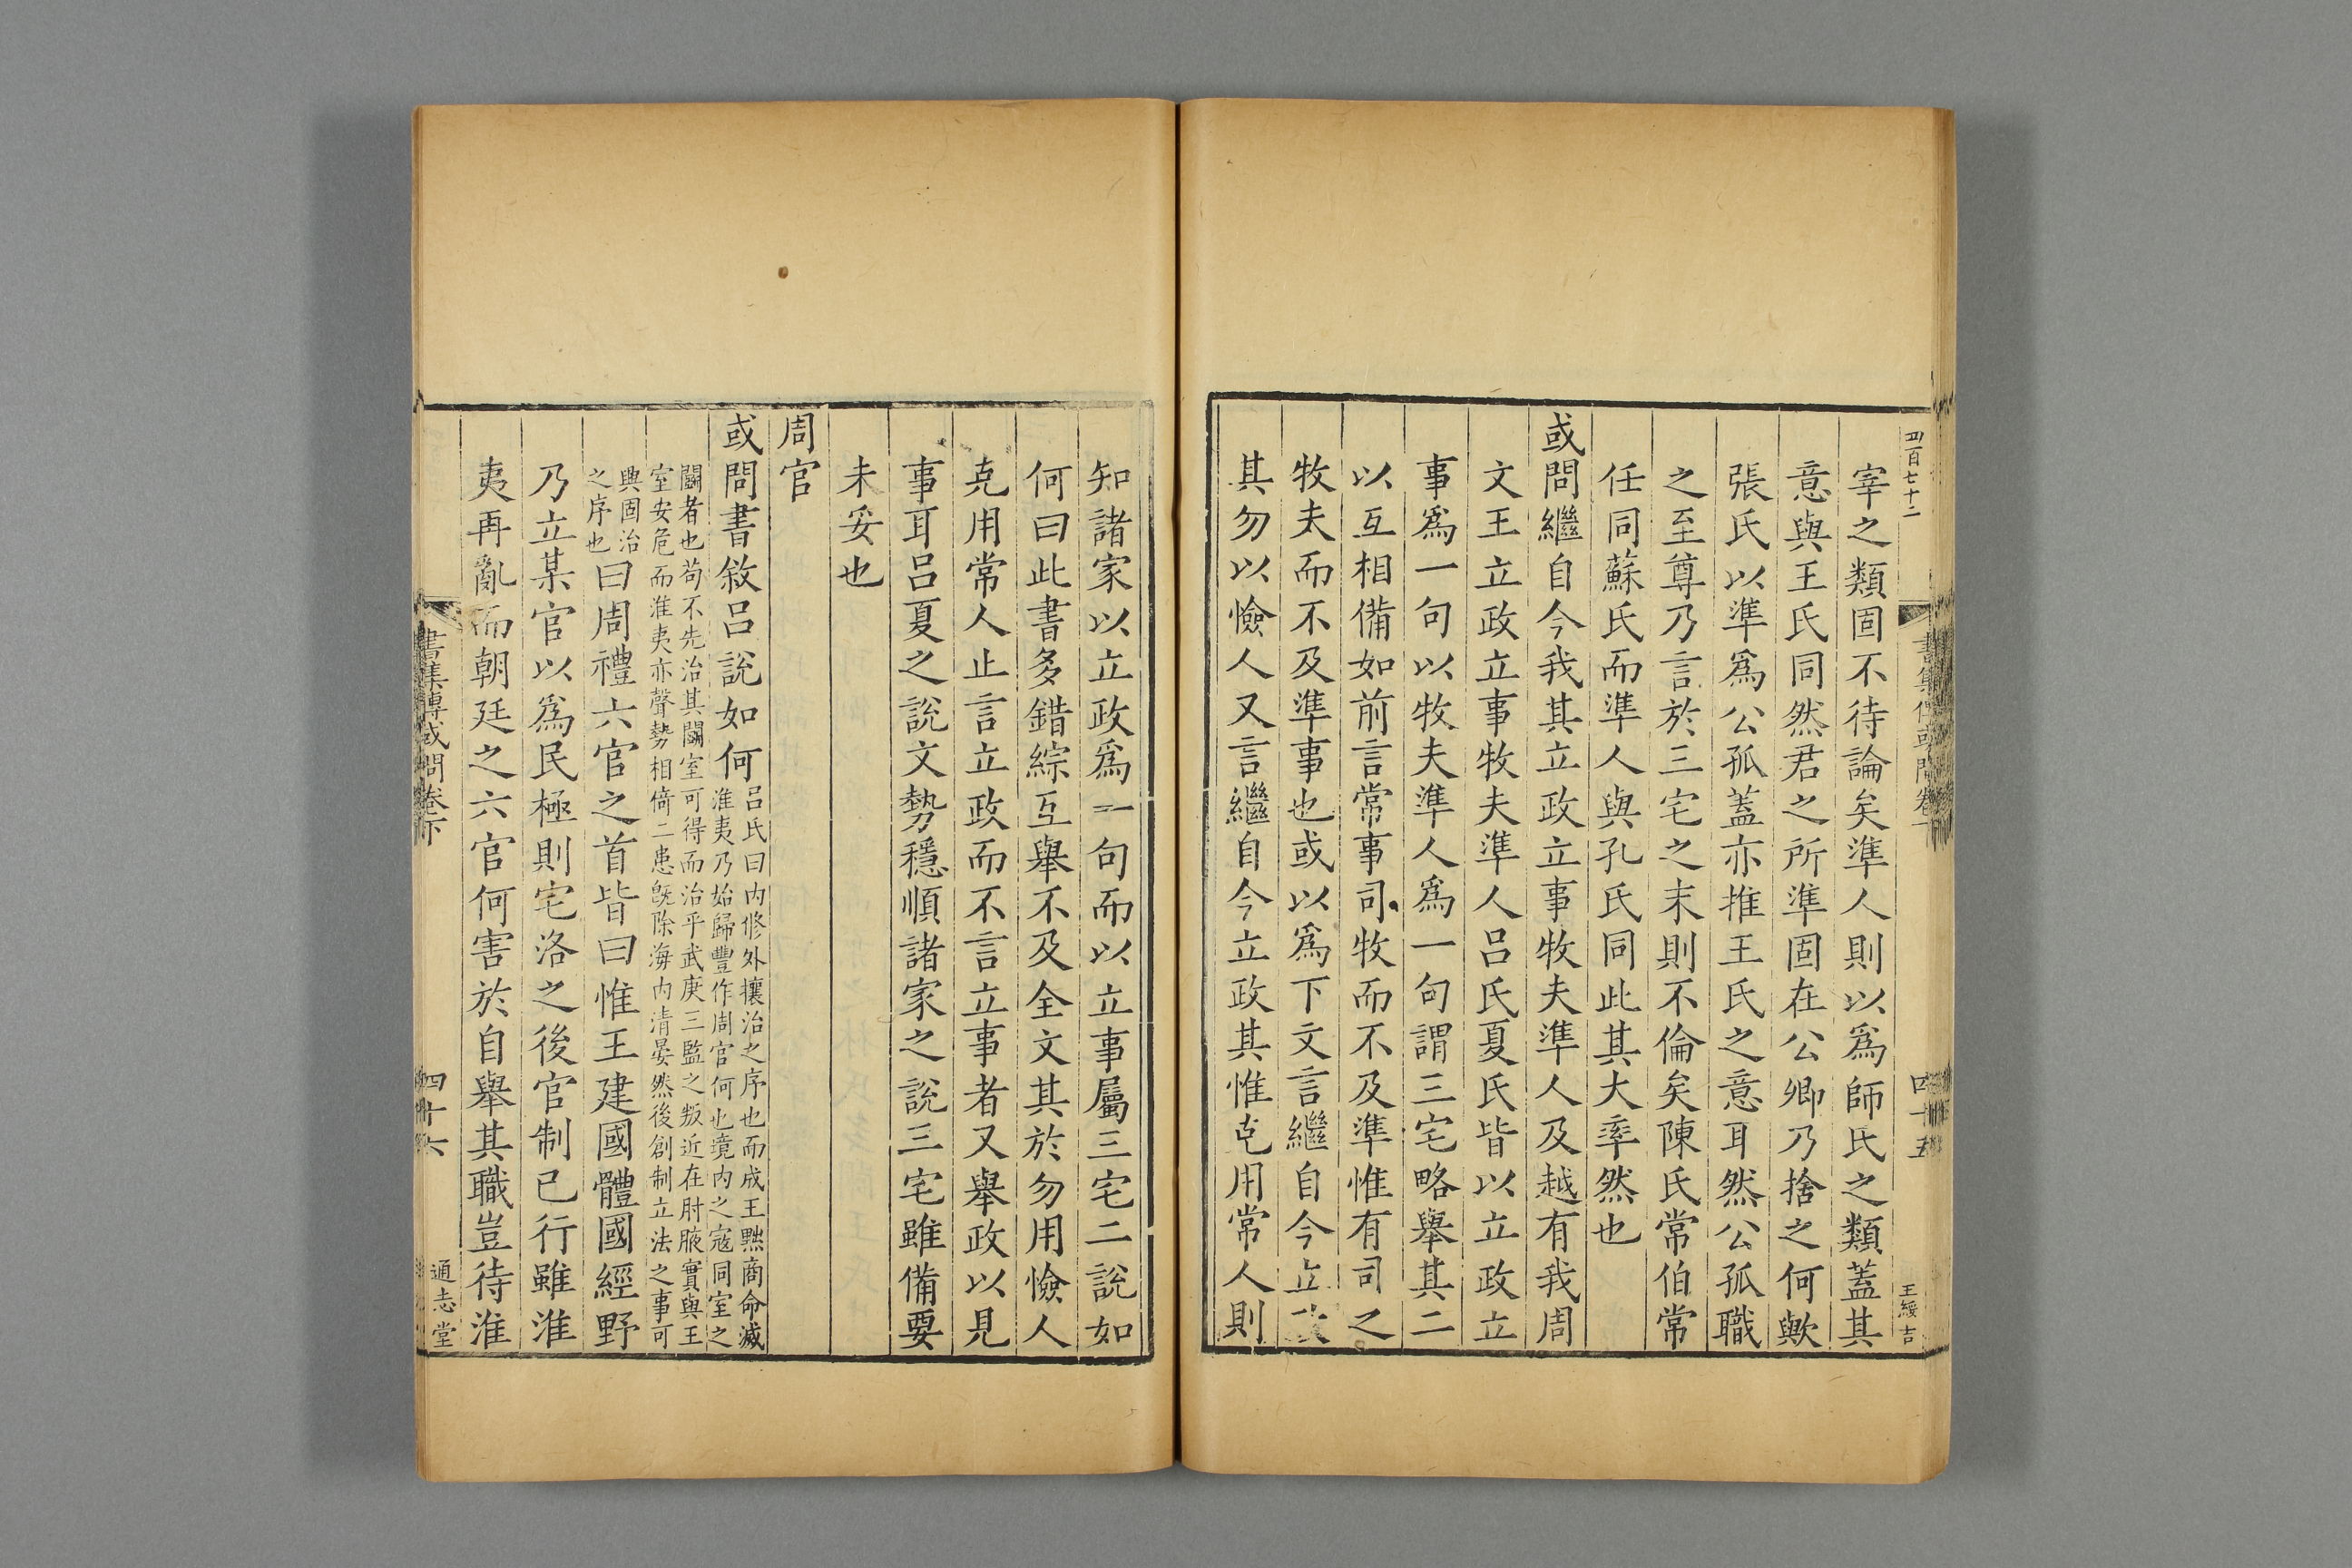 四百七十二
書集傳或問卷下
四十五
王綏吉
宰之類固不待論矣準人則以爲師氏之類蓋其
意與王氏同然君之所準固在公卿乃捨之何歟
張氏以準爲公孤蓋亦推王氏之意耳然公孤職
之至尊乃言於三宅之末則不倫矣陳氏常伯常
任同蘇氏而準人與孔氏同此其大率然也
或問繼自今我其立政立事牧夫準人及越有我周
文王立政立事牧夫準人呂氏夏氏皆以立政立
事爲一句以牧夫準人爲一句謂三宅略舉其二
以互相備如前言常事司牧而不及準惟有司之
牧夫而不及準事也或以爲下文言繼自今立政
其勿以憸人又言繼自今立政其惟克用常人則
知諸家以立政爲一句而以立事屬三宅二說如
何曰此書多錯綜互舉不及全文其於勿用憸人
克用常人止言立政而不言立事者又舉政以見
事耳呂夏之說文勢穩順諸家之說三宅雖備要
未妥也
周官
或問書敘呂說如何呂氏曰内修外攘治之序也而成王黜商命滅
淮夷乃始歸豐作周官何也境内之寇同室之
鬭者也苟不先治其鬭室可得而治乎武庚三監之叛近在肘腋實與王
室安危而淮夷亦聲勢相倚二患旣除海内清晏然後創制立法之事可
與固治
之序也曰周禮六官之首皆曰惟王建國體國經野
乃立某官以爲民極則宅洛之後官制已行雖淮
夷再亂而朝廷之六官何害於自舉其職豈待淮
書集傳或問卷下
四十六
通志堂